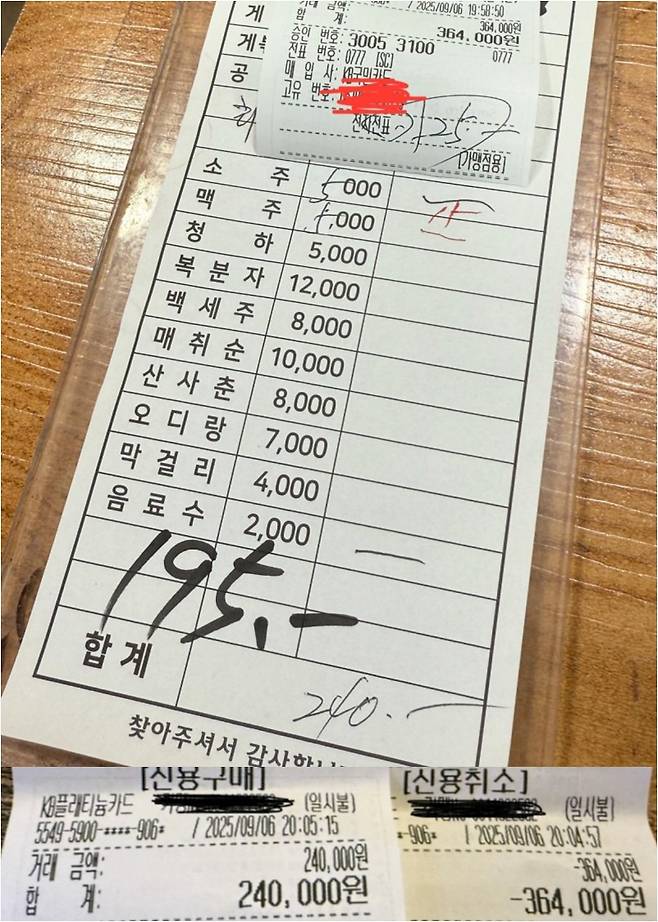 게
게
공
/ 2025/09/06 19:58:50
364,000원
합 계: 364,000원
승인 번호: 3005 3100
전표 번호: 0777 [SC] 0777
매 입 사: KB국민카드
고유 번호:
전자전표
[가맹점용]
소 주 5000
맥 주 5,000
청 하 5,000
복분자 12,000
백세주 8,000
매취순 10,000
산사춘 8,000
오디랑 7,000
막걸리 4,000
음료수 2,000
195.-
합계
240.-
찾아주셔서 감사합니
[신용구매]
KB플래티늄카드 (일시불)
5549-5900-****-906* / 2025/09/06 20:05:15
거래 금액: 240,000원
합 계: 240,000원
[신용취소]
(일시불)
*-906* / 2025/09/06 20:04:57
-364,000원
-364,000원